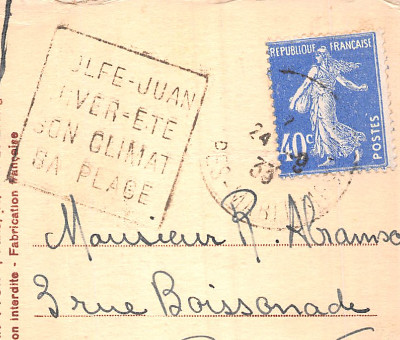 OLFE-JUAN
IVER-ÉTÉ
SON CLIMAT
SA PLAGE
REPUBLIQUE FRANÇAISE
40c
POSTES
24
Monsieur R. Abramso
3 rue Boissonade
on interdite - Fabrication française